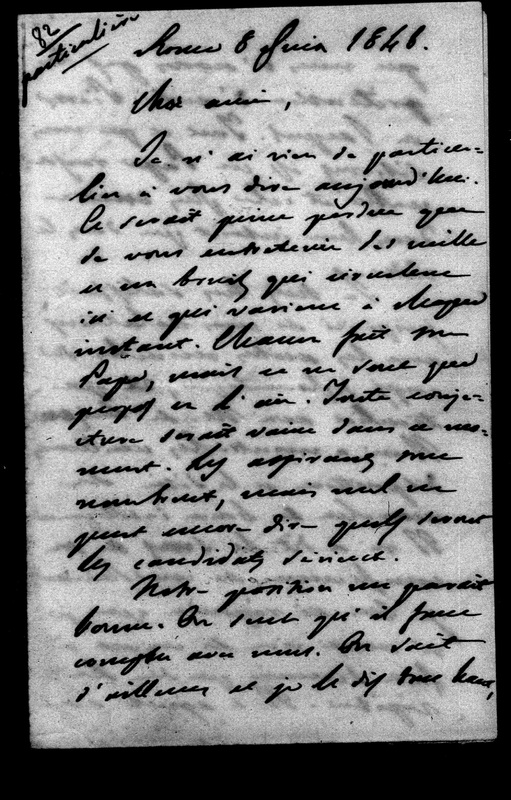 82
particulière
Rome 8 Juin 1846.
Cher ami,
Je n'ai rien de particu-
lier à vous dire aujourd'hui.
Ce serait peine perdue que
de vous entretenir des mille
et un bruits qui circulent
ici et qui varient à chaque
instant. Chacun fait son
Pape, mais ce ne sont que
propos en l'air. Toute conje-
cture serait vaine dans ce mo-
ment. Les aspirants sont
nombreux, mais nul ne
peut encore dire quels seront
les candidats sérieux.
Notre position me paraît
bonne. On sent qu'il faut
compter avec nous. On sait
d'ailleurs et je le dis tout haut,